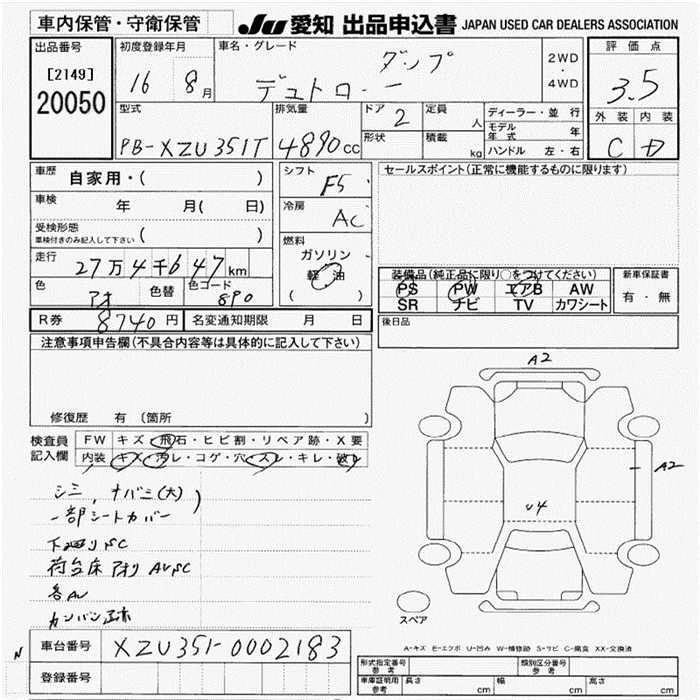 車内保管・守衛保管
JU 愛知 出品申込書 JAPAN USED CAR DEALERS ASSOCIATION
出品番号
[2149]
20050
初度登録年月
16 8月
車名・グレード
ダンプ
デュトロ
2WD
・
4WD
評価点
3.5
外装 内装
C D
型式
PB-XZU351T
排気量
4890cc
ドア
2
形状
定員
人
積載
kg
ディーラー・並行
モデル年式 年
ハンドル 左・右
車歴 自家用・( )
車検 年 月( 日)
受検形態
車検付きのみ記入して下さい ( )
走行
27万4千647km
色 アオ 色替 色コード 890
R券 8740円 名変通知期限 月 日
シフト
F5
冷房
AC
燃料
ガソリン
軽油
( )
セールスポイント(正常に機能するものに限ります)
装備品(純正品に限り○をつけてください)
PS PW エアB AW
SR ナビ TV カワシート
新車保証書
有・無
後日品
注意事項申告欄(不具合内容等は具体的に記入して下さい)
修復歴 有(箇所 )
検査員記入欄
FW キズ・飛石・ヒビ割・リペア跡・X要
内装 キズ・汚レ・コゲ・穴・スレ・キレ・破レ
シミ,ナバミ(大)
一部シートカバー
下廻りSC
荷台床アオリAVSC
各AU
カンバン正赤
A2
A2
U4
スペア
A-キズ E-エクボ U-凹み W-補修跡 S-サビ C-腐食 XX-交換済
N
車台番号 XZU351-0002183
登録番号
形式指定番号 参考
類別区分番号 参考
車庫証明用 参考 長さ cm 幅 cm 高さ cm